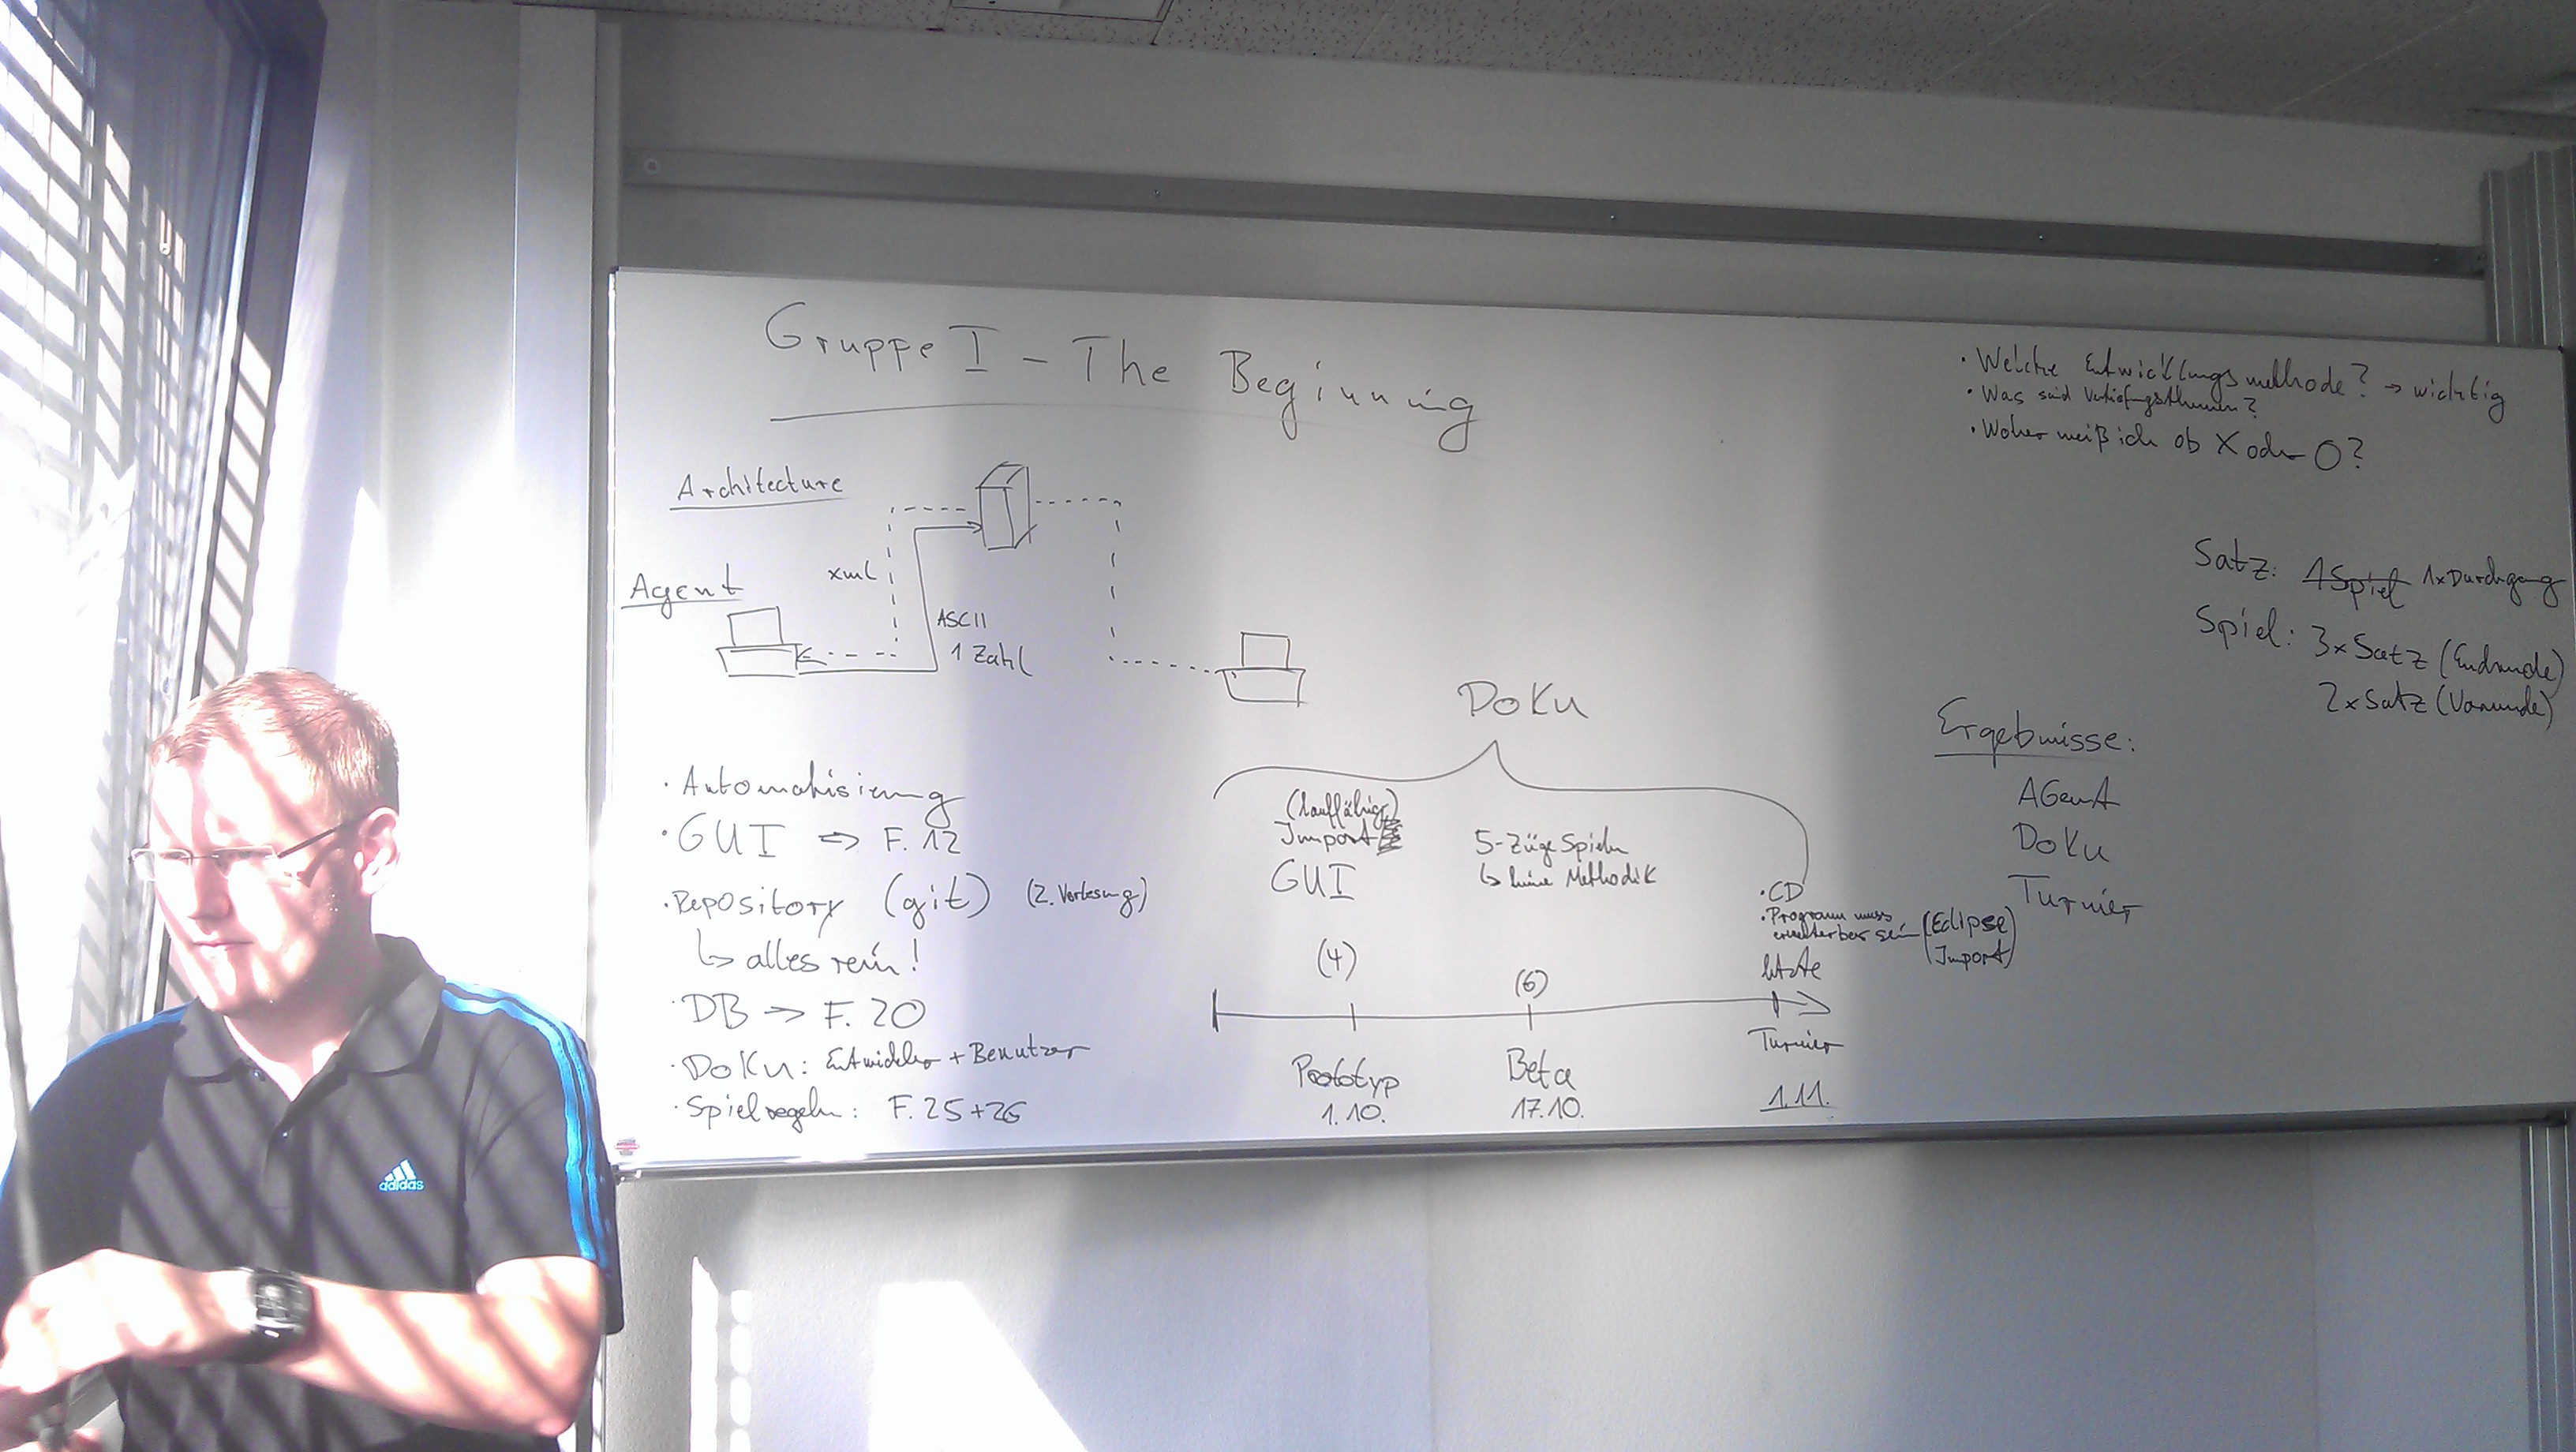 Gruppe I - The Beginning
Architecture
Agent
xml
ASCII
1 Zahl
• Automatisierung
• GUI => F. 12
• Repository (git) (2. Vorlesung)
↳ alles rein!
• DB -> F. 20
• Doku: Entwickler + Benutzer
• Spielregeln: F. 25+26
Doku
(lauffähig)
Import
GUI
5-Züge Spielen
↳ keine Methodik
• CD
• Programm muss
erweiterbar sein (Eclipse
Import)
(4)
(6)
letzte
Prototyp
1.10.
Beta
17.10.
Turnier
1.11.
• Welche Entwicklungsmethode? -> wichtig
• Was sind Vertiefungsthemen?
• Woher weiß ich ob X oder O?
Satz: 1 Spiel 1xDurchgang
Spiel: 3xSatz (Endrunde)
2xSatz (Vorrunde)
Ergebnisse:
AGenT
Doku
Turnier
adidas